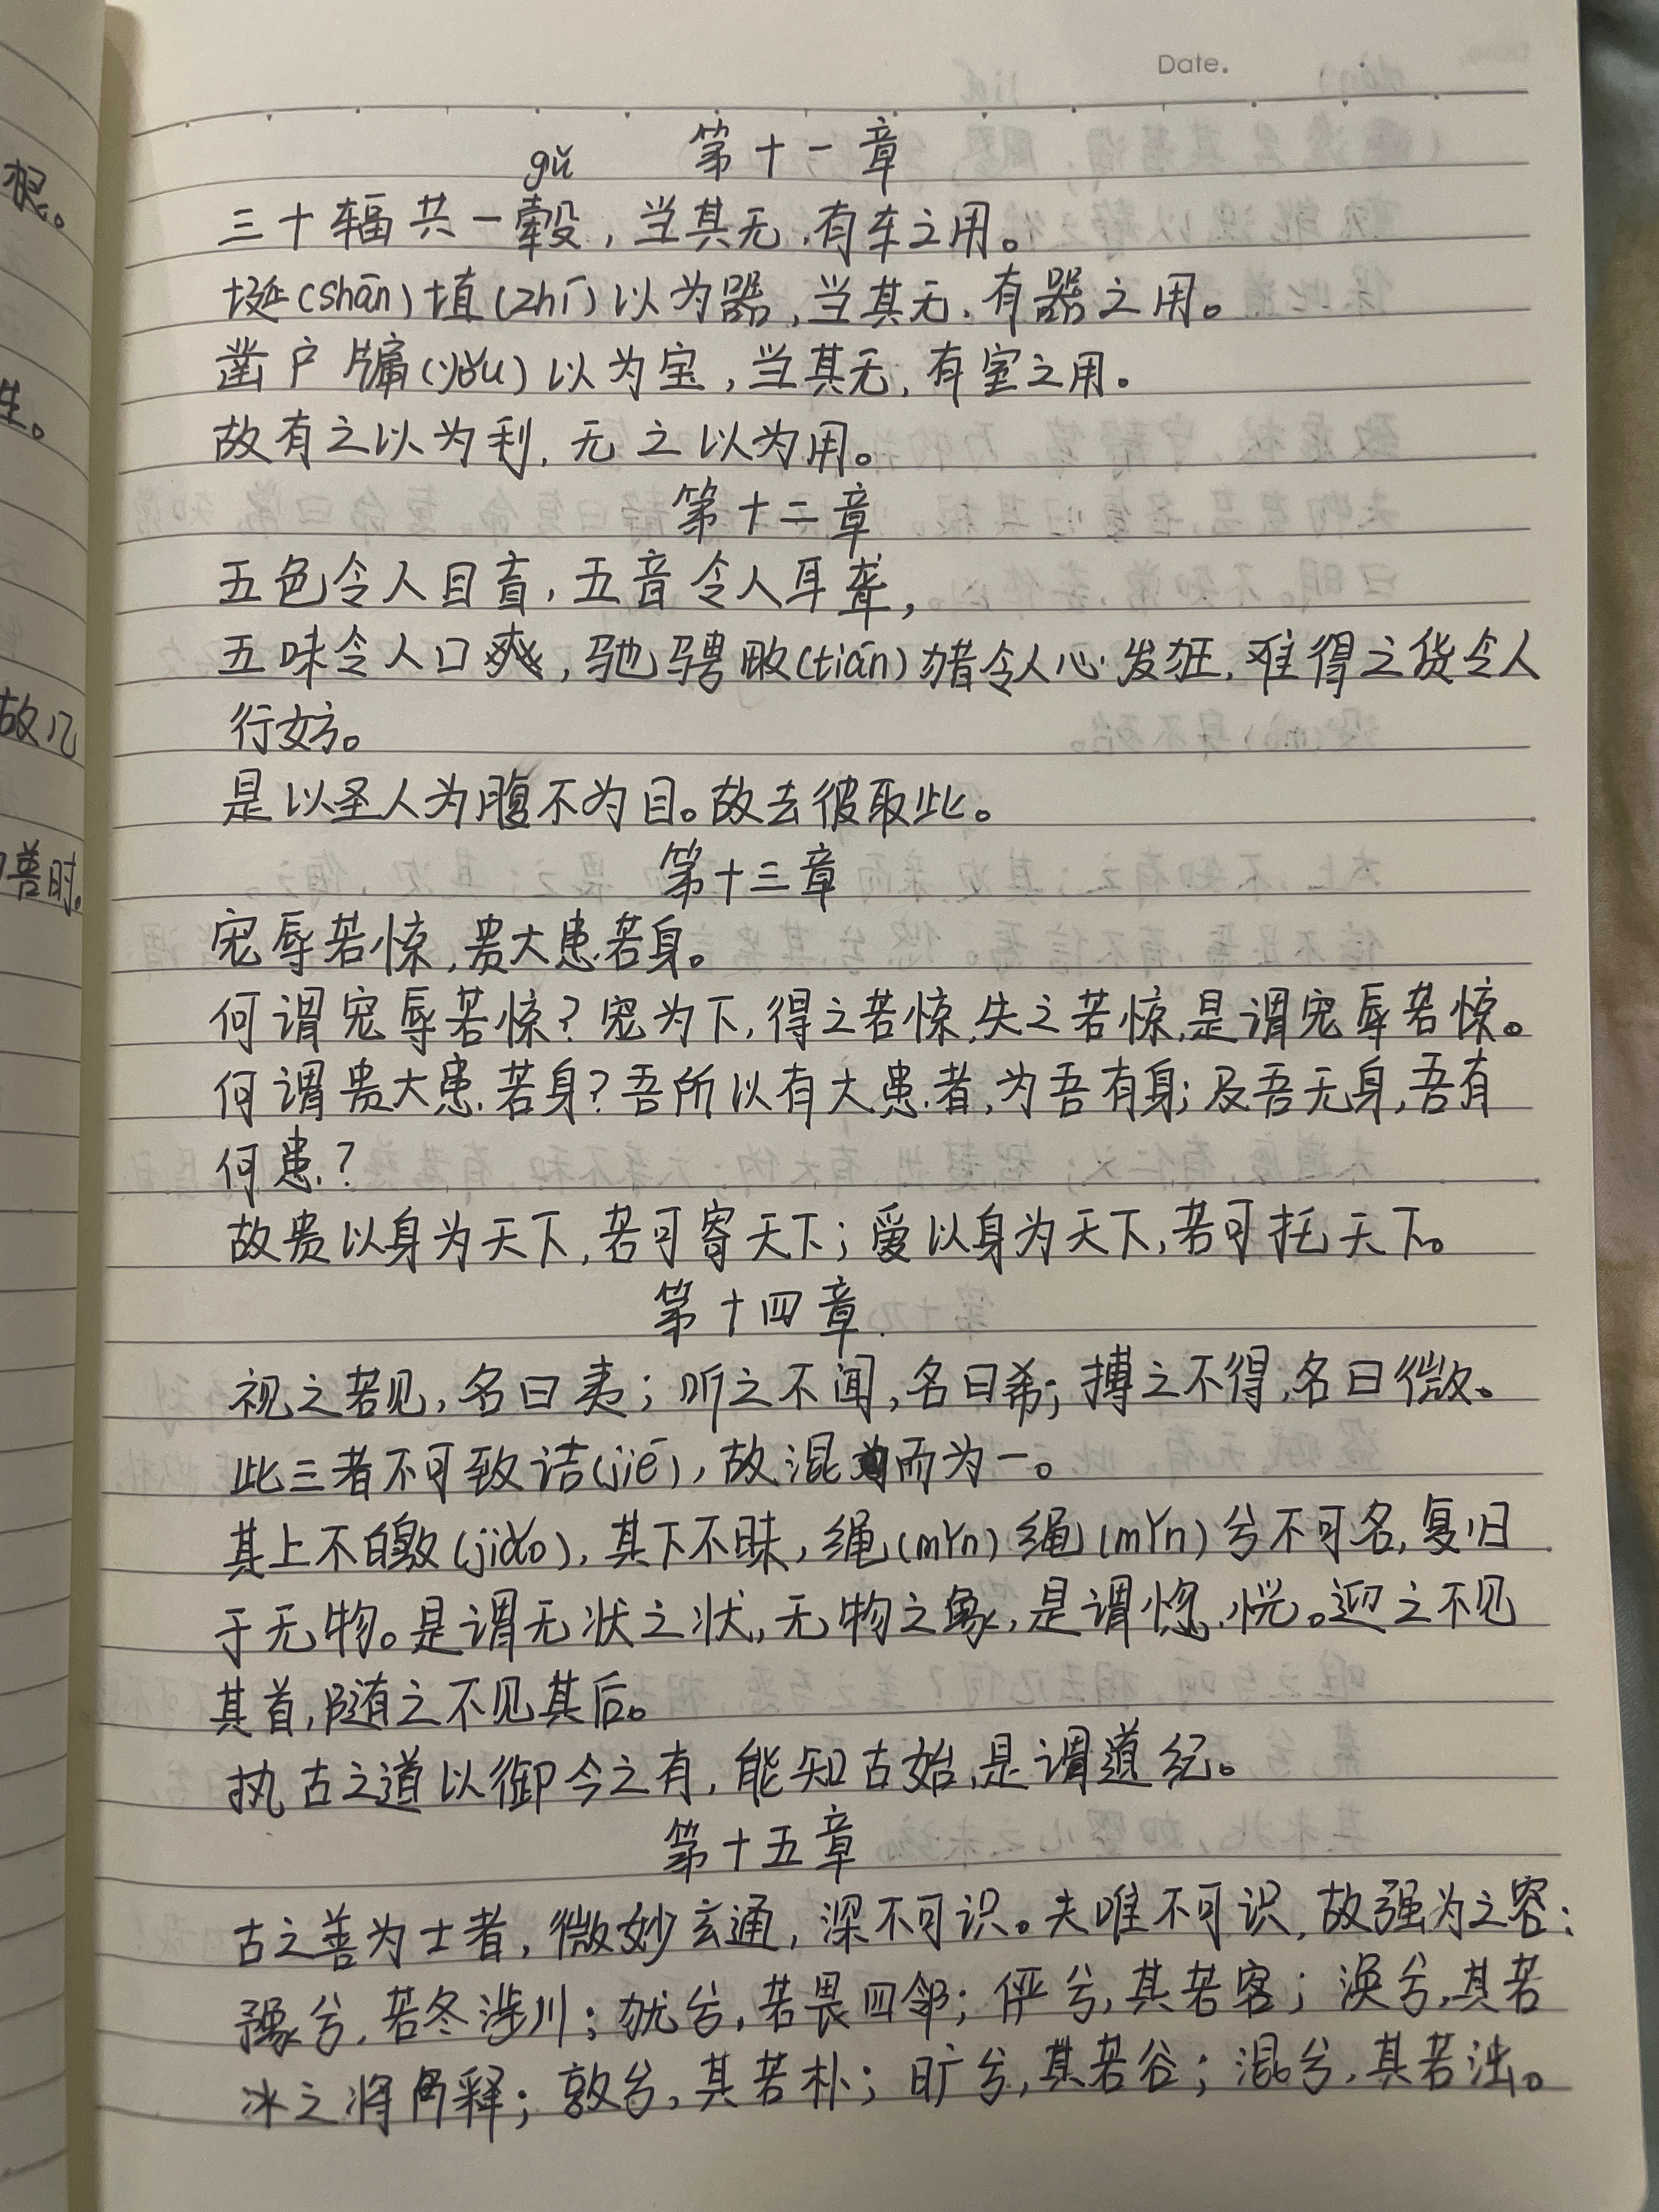 Date.
第十一章
gǔ
三十辐共一毂，当其无，有车之用。
埏(shān)埴(zhí)以为器，当其无，有器之用。
凿户牖(yǒu)以为室，当其无，有室之用。
故有之以为利，无之以为用。
第十二章
五色令人目盲，五音令人耳聋，
五味令人口爽，驰骋畋(tián)猎令人心发狂，难得之货令人
行妨。
是以圣人为腹不为目。故去彼取此。
第十三章
宠辱若惊，贵大患若身。
何谓宠辱若惊？宠为下，得之若惊，失之若惊，是谓宠辱若惊。
何谓贵大患若身？吾所以有大患者，为吾有身；及吾无身，吾有
何患？
故贵以身为天下，若可寄天下；爱以身为天下，若可托天下。
第十四章
视之若见，名曰夷；听之不闻，名曰希；搏之不得，名曰微。
此三者不可致诘(jié)，故混而为一。
其上不皦(jiǎo)，其下不昧，绳(mǐn)绳(mǐn)兮不可名，复归
于无物。是谓无状之状，无物之象，是谓惚恍。迎之不见
其首，随之不见其后。
执古之道以御今之有，能知古始，是谓道纪。
第十五章
古之善为士者，微妙玄通，深不可识。夫唯不可识，故强为之容：
豫兮，若冬涉川；犹兮，若畏四邻；俨兮，其若客；涣兮，其若
冰之将释；敦兮，其若朴；旷兮，其若谷；混兮，其若浊。
根。
生。
故几
善时。